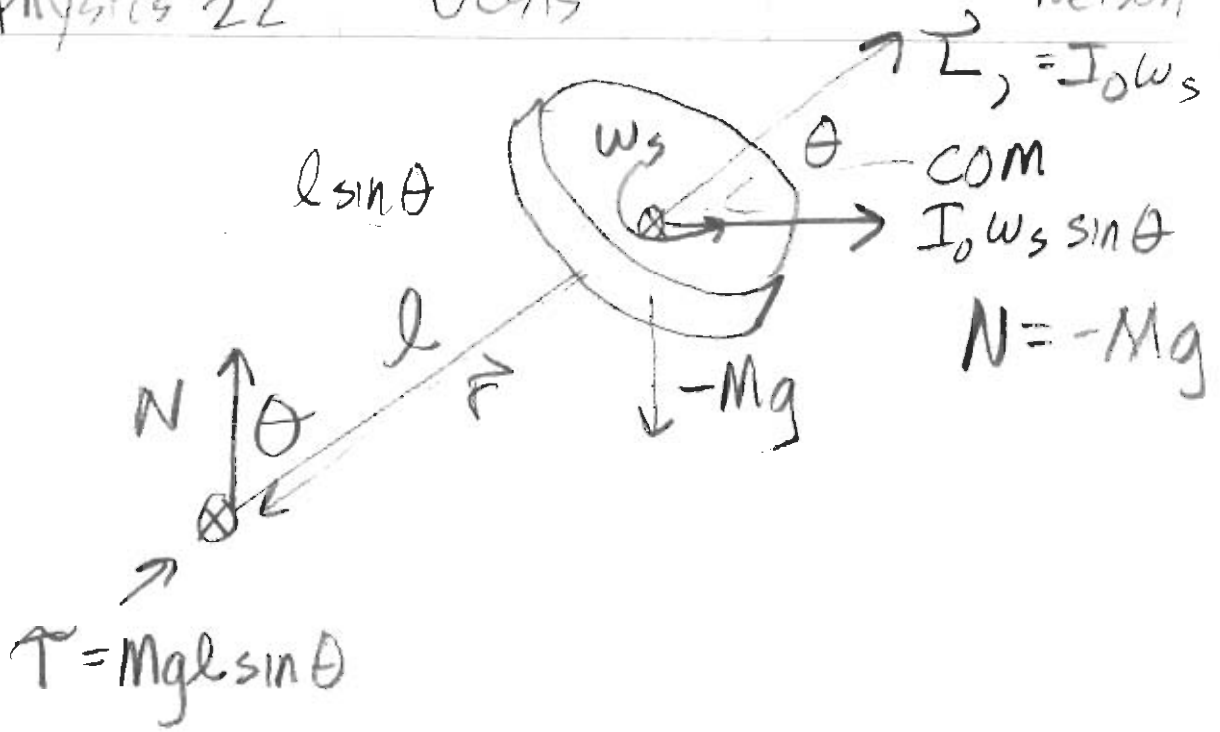 Physics 22
L⃗, = I₀ωₛ
ωₛ
θ
COM
l sinθ
I₀ ωₛ sinθ
l
N = -Mg
r⃗
-Mg
N
θ
τ = Mgl sinθ